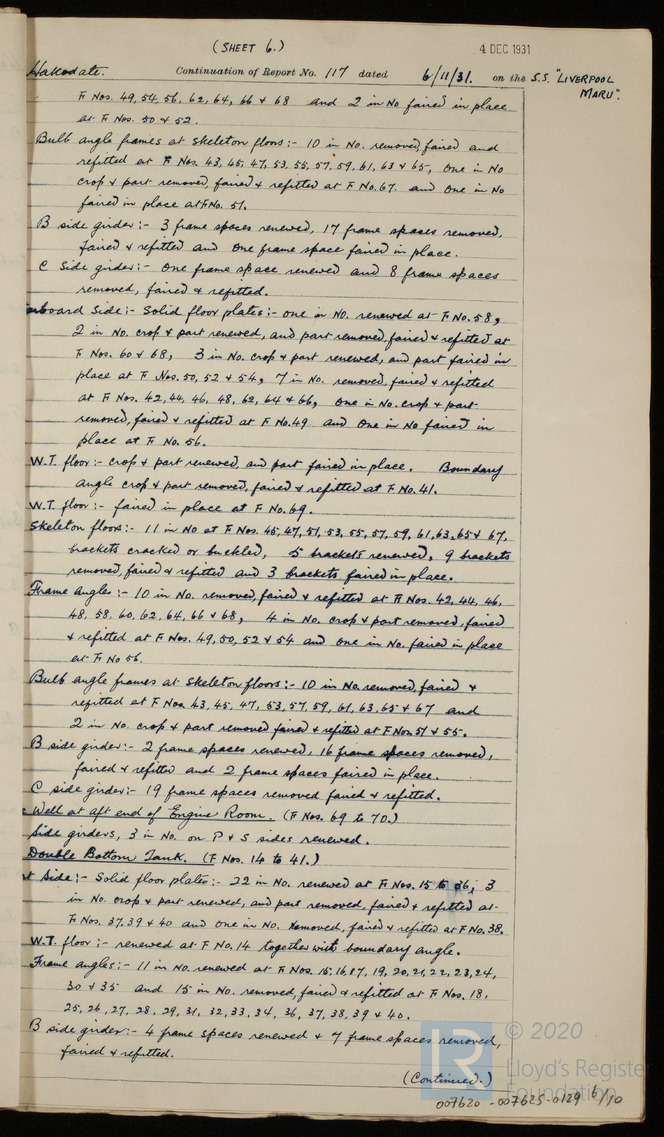 (SHEET 6.)
4 DEC 1931
Hakodate. Continuation of Report No. 117 dated 6/11/31. on the S.S. "LIVERPOOL
MARU".
F Nos. 49, 54, 56, 62, 64, 66 & 68 and 2 in No faired in place
at F Nos. 50 & 52.
Bulb angle frames at skeleton floors:- 10 in No. removed, faired and
refitted at F Nos. 43, 45, 47, 53, 55, 57, 59, 61, 63 & 65, one in No
crop & part removed, faired & refitted at F No. 67. and one in No
faired in place at F No. 51.
B side girder:- 3 frame spaces renewed, 17 frame spaces removed,
faired & refitted and one frame space faired in place.
C Side girder:- one frame space renewed and 8 frame spaces
removed, faired & refitted.
arboard Side:- Solid floor plates:- one in No. renewed at F No. 58,
2 in No. crop & part renewed, and part removed, faired & refitted at
F Nos. 60 & 68, 3 in No. crop & part renewed, and part faired in
place at F Nos. 50, 52 & 54, 7 in No. removed, faired & refitted
at F Nos. 42, 44, 46, 48, 62, 64 & 66, one in No. crop & part
removed, faired & refitted at F No. 49 and one in No faired in
place at F No. 56.
W.T. floor:- crop & part renewed, and part faired in place. Boundary
angle crop & part removed, faired & refitted at F No. 41.
W.T. floor:- faired in place at F No. 69.
Skeleton floors:- 11 in No at F Nos. 45, 47, 51, 53, 55, 57, 59, 61, 63, 65 & 67,
brackets cracked or buckled, 5 brackets renewed, 9 brackets
removed, faired & refitted and 3 brackets faired in place.
Frame Angles:- 10 in No. removed, faired & refitted at F Nos. 42, 44, 46,
48, 58, 60, 62, 64, 66 & 68, 4 in No. crop & part removed, faired
& refitted at F Nos. 49, 50, 52 & 54 and one in No. faired in place
at F No 56.
Bulb angle frames at skeleton floors:- 10 in No. removed, faired &
refitted at F Nos. 43, 45, 47, 53, 57, 59, 61, 63, 65 & 67 and
2 in No. crop & part removed faired & refitted at F Nos. 51 & 55.
B side girder:- 2 frame spaces renewed, 16 frame spaces removed,
faired & refitted and 2 frame spaces faired in place.
C side girder:- 19 frame spaces removed faired & refitted.
Well at aft end of Engine Room. (F Nos. 69 to 70.)
Side girders, 3 in No. on P & S sides renewed.
Double Bottom Tank. (F Nos. 14 to 41.)
t Side:- Solid floor plates:- 22 in No. renewed at F Nos. 15 to 36, 3
in No. crop & part renewed, and part removed, faired & refitted at
F Nos. 37, 39 & 40 and one in No. removed, faired & refitted at F No. 38.
W.T. floor:- renewed at F No. 14 together with boundary angle.
Frame angles:- 11 in No. renewed at F Nos. 15, 16, 17, 19, 20, 21, 22, 23, 24,
30 & 35 and 15 in No. removed, faired & refitted at F Nos. 18,
25, 26, 27, 28, 29, 31, 32, 33, 34, 36, 37, 38, 39 & 40.
B side girder:- 4 frame spaces renewed & 7 frame spaces removed,
faired & refitted.
(Continued.)
LR © 2020
Lloyd's Register
Foundation
007620-007625-0129 6/10